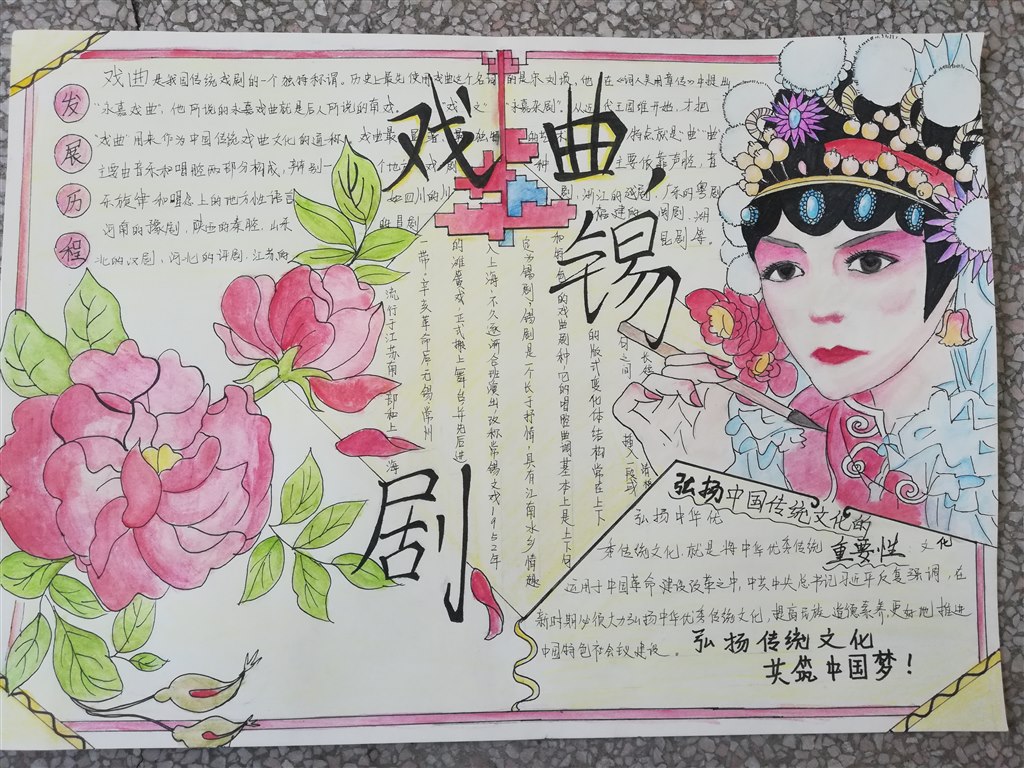 戏曲,锡剧
发展历程
戏曲是我国传统戏剧的一个独特称谓。历史上最先使用戏曲这个名词的是宋刘埙,他在《词人吴用章传》中提出
“永嘉戏曲”,他所说的永嘉戏曲就是后人所说的南戏、“戏文”“永嘉杂剧”。从近代王国维开始,才把
“戏曲”用来作为中国传统戏曲文化的通称。戏曲最 特点就是“曲”,曲
主要由音乐和唱腔两部分构成,辨别一 个地方戏 剧种 主要依靠声腔,音
乐旋律和唱念上的地方性语言 如四川的川 剧,浙江的戏剧,广东的粤剧
河南的豫剧,陕西的秦腔,山东 的吕剧 福建的 闽剧,湖
北的汉剧,河北的评剧,江苏的 昆剧等。
和特色的戏曲剧种,它的唱腔曲调基本上是上下句
的版式变化体结构,常在上下
句之间 插入一段或
定名锡剧,锡剧是一个长于抒情,具有江南水乡情趣
入上海,不久逐渐合班演出,改称常锡文戏1952年
的滩簧戏,正式搬上舞台并先后进
一带,辛亥革命后无锡常州
流行于江苏南部和上海
弘扬中国传统文化的
重要性
弘扬中华优
秀传统文化,就是将中华优秀传统文化
运用于中国革命建设改革之中,中共中央总书记习近平反复强调,在
新时期必须大力弘扬中华优秀传统文化,提高民族道德素养,更好地推进
中国特色社会主义建设。
弘扬传统文化
共筑中国梦!